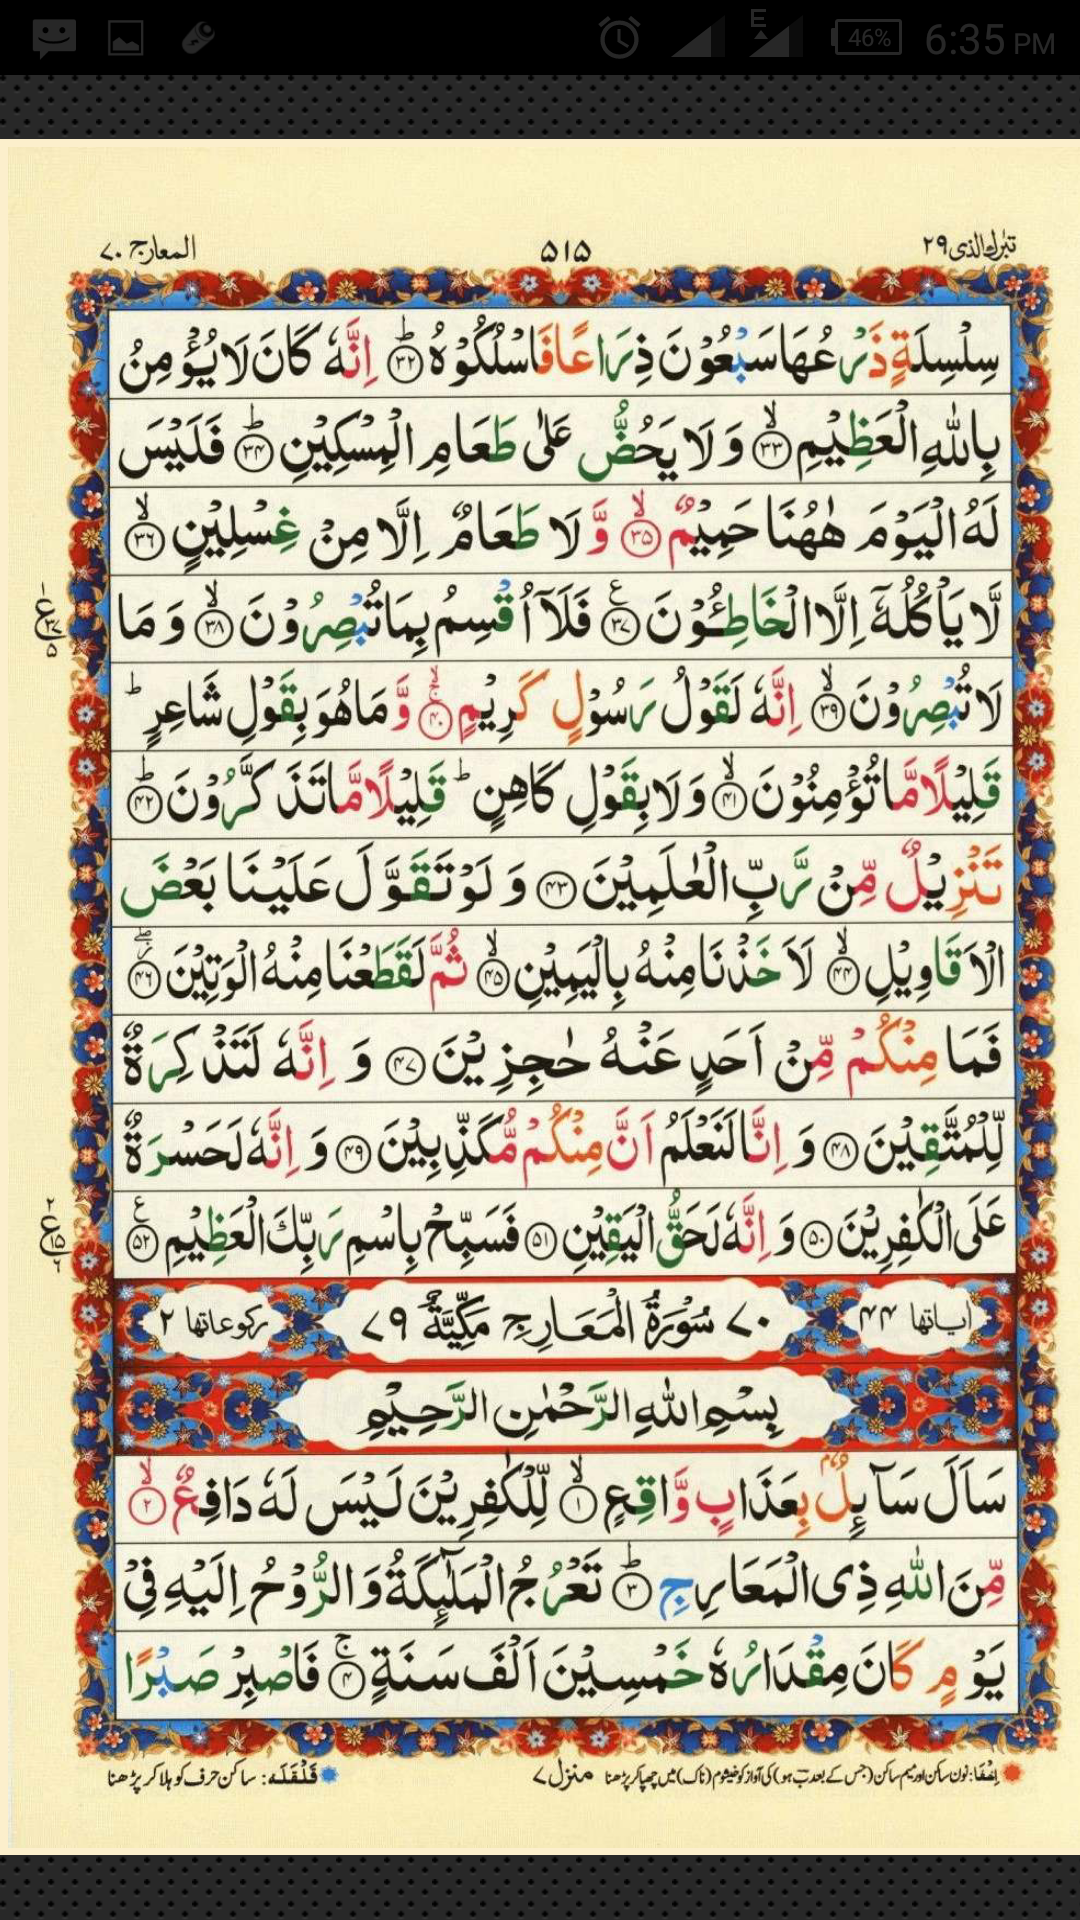 E 46% 6:35 PM
تبٰرك الذی ۲۹ ۵۱۵ المعارج ۷۰
سِلْسِلَةٍ ذَرْعُهَا سَبْعُوْنَ ذِرَاعًا فَاسْلُكُوْهُ ؕ‏﴿۳۲﴾ اِنَّهٗ كَانَ لَا يُؤْمِنُ
بِاللّٰهِ الْعَظِيْمِ ۙ‏﴿۳۳﴾ وَ لَا يَحُضُّ عَلٰى طَعَامِ الْمِسْكِيْنِ ؕ‏﴿۳۴﴾ فَلَيْسَ
لَهُ الْيَوْمَ هٰهُنَا حَمِيْمٌ ۙ‏﴿۳۵﴾ وَّ لَا طَعَامٌ اِلَّا مِنْ غِسْلِيْنٍ ۙ‏﴿۳۶﴾
لَّا يَاْكُلُهٗۤ اِلَّا الْخَاطِـُٔوْنَ ﴿۳۷﴾ع فَلَاۤ اُقْسِمُ بِمَا تُبْصِرُوْنَ ۙ‏﴿۳۸﴾ وَ مَا
لَا تُبْصِرُوْنَ ۙ‏﴿۳۹﴾ اِنَّهٗ لَقَوْلُ رَسُوْلٍ كَرِيْمٍ ۚۙ‏﴿۴۰﴾ وَّ مَا هُوَ بِقَوْلِ شَاعِرٍ ؕ
قَلِيْلًا مَّا تُؤْمِنُوْنَ ۙ‏﴿۴۱﴾ وَ لَا بِقَوْلِ كَاهِنٍ ؕ قَلِيْلًا مَّا تَذَكَّرُوْنَ ؕ‏﴿۴۲﴾
تَنْزِيْلٌ مِّنْ رَّبِّ الْعٰلَمِيْنَ ﴿۴۳﴾ وَ لَوْ تَقَوَّلَ عَلَيْنَا بَعْضَ
الْاَقَاوِيْلِ ۙ‏﴿۴۴﴾ لَاَخَذْنَا مِنْهُ بِالْيَمِيْنِ ۙ‏﴿۴۵﴾ ثُمَّ لَقَطَعْنَا مِنْهُ الْوَتِيْنَ ﴿۴۶﴾
فَمَا مِنْكُمْ مِّنْ اَحَدٍ عَنْهُ حٰجِزِيْنَ ﴿۴۷﴾ وَ اِنَّهٗ لَتَذْكِرَةٌ
لِّلْمُتَّقِيْنَ ﴿۴۸﴾ وَ اِنَّا لَنَعْلَمُ اَنَّ مِنْكُمْ مُّكَذِّبِيْنَ ﴿۴۹﴾ وَ اِنَّهٗ لَحَسْرَةٌ
عَلَى الْكٰفِرِيْنَ ﴿۵۰﴾ وَ اِنَّهٗ لَحَقُّ الْيَقِيْنِ ﴿۵۱﴾ فَسَبِّحْ بِاسْمِ رَبِّكَ الْعَظِيْمِ ﴿۵۲﴾ع
اٰياتها ۴۴ ۷۰ سُوْرَةُ الْمَعَارِجِ مَكِّيَّةٌ ۷۹ ركوعاتها ۲
بِسْمِ اللّٰهِ الرَّحْمٰنِ الرَّحِيْمِ
سَاَلَ سَآئِلٌۢ بِعَذَابٍ وَّاقِعٍ ۙ‏﴿۱﴾ لِّلْكٰفِرِيْنَ لَيْسَ لَهٗ دَافِعٌ ۙ‏﴿۲﴾
مِّنَ اللّٰهِ ذِى الْمَعَارِجِ ؕ‏﴿۳﴾ تَعْرُجُ الْمَلٰٓئِكَةُ وَ الرُّوْحُ اِلَيْهِ فِىْ
يَوْمٍ كَانَ مِقْدَارُهٗ خَمْسِيْنَ اَلْفَ سَنَةٍ ۚ‏﴿۴﴾ فَاصْبِرْ صَبْرًا
اِخفَا: نون ساکن اور میم ساکن (جس کے بعد ب ہو) کی آواز کو خیشوم (ناک) میں چھپا کر پڑھنا منزل ۷ قَلْقَلَه: ساکن حرف کو ہلا کر پڑھنا